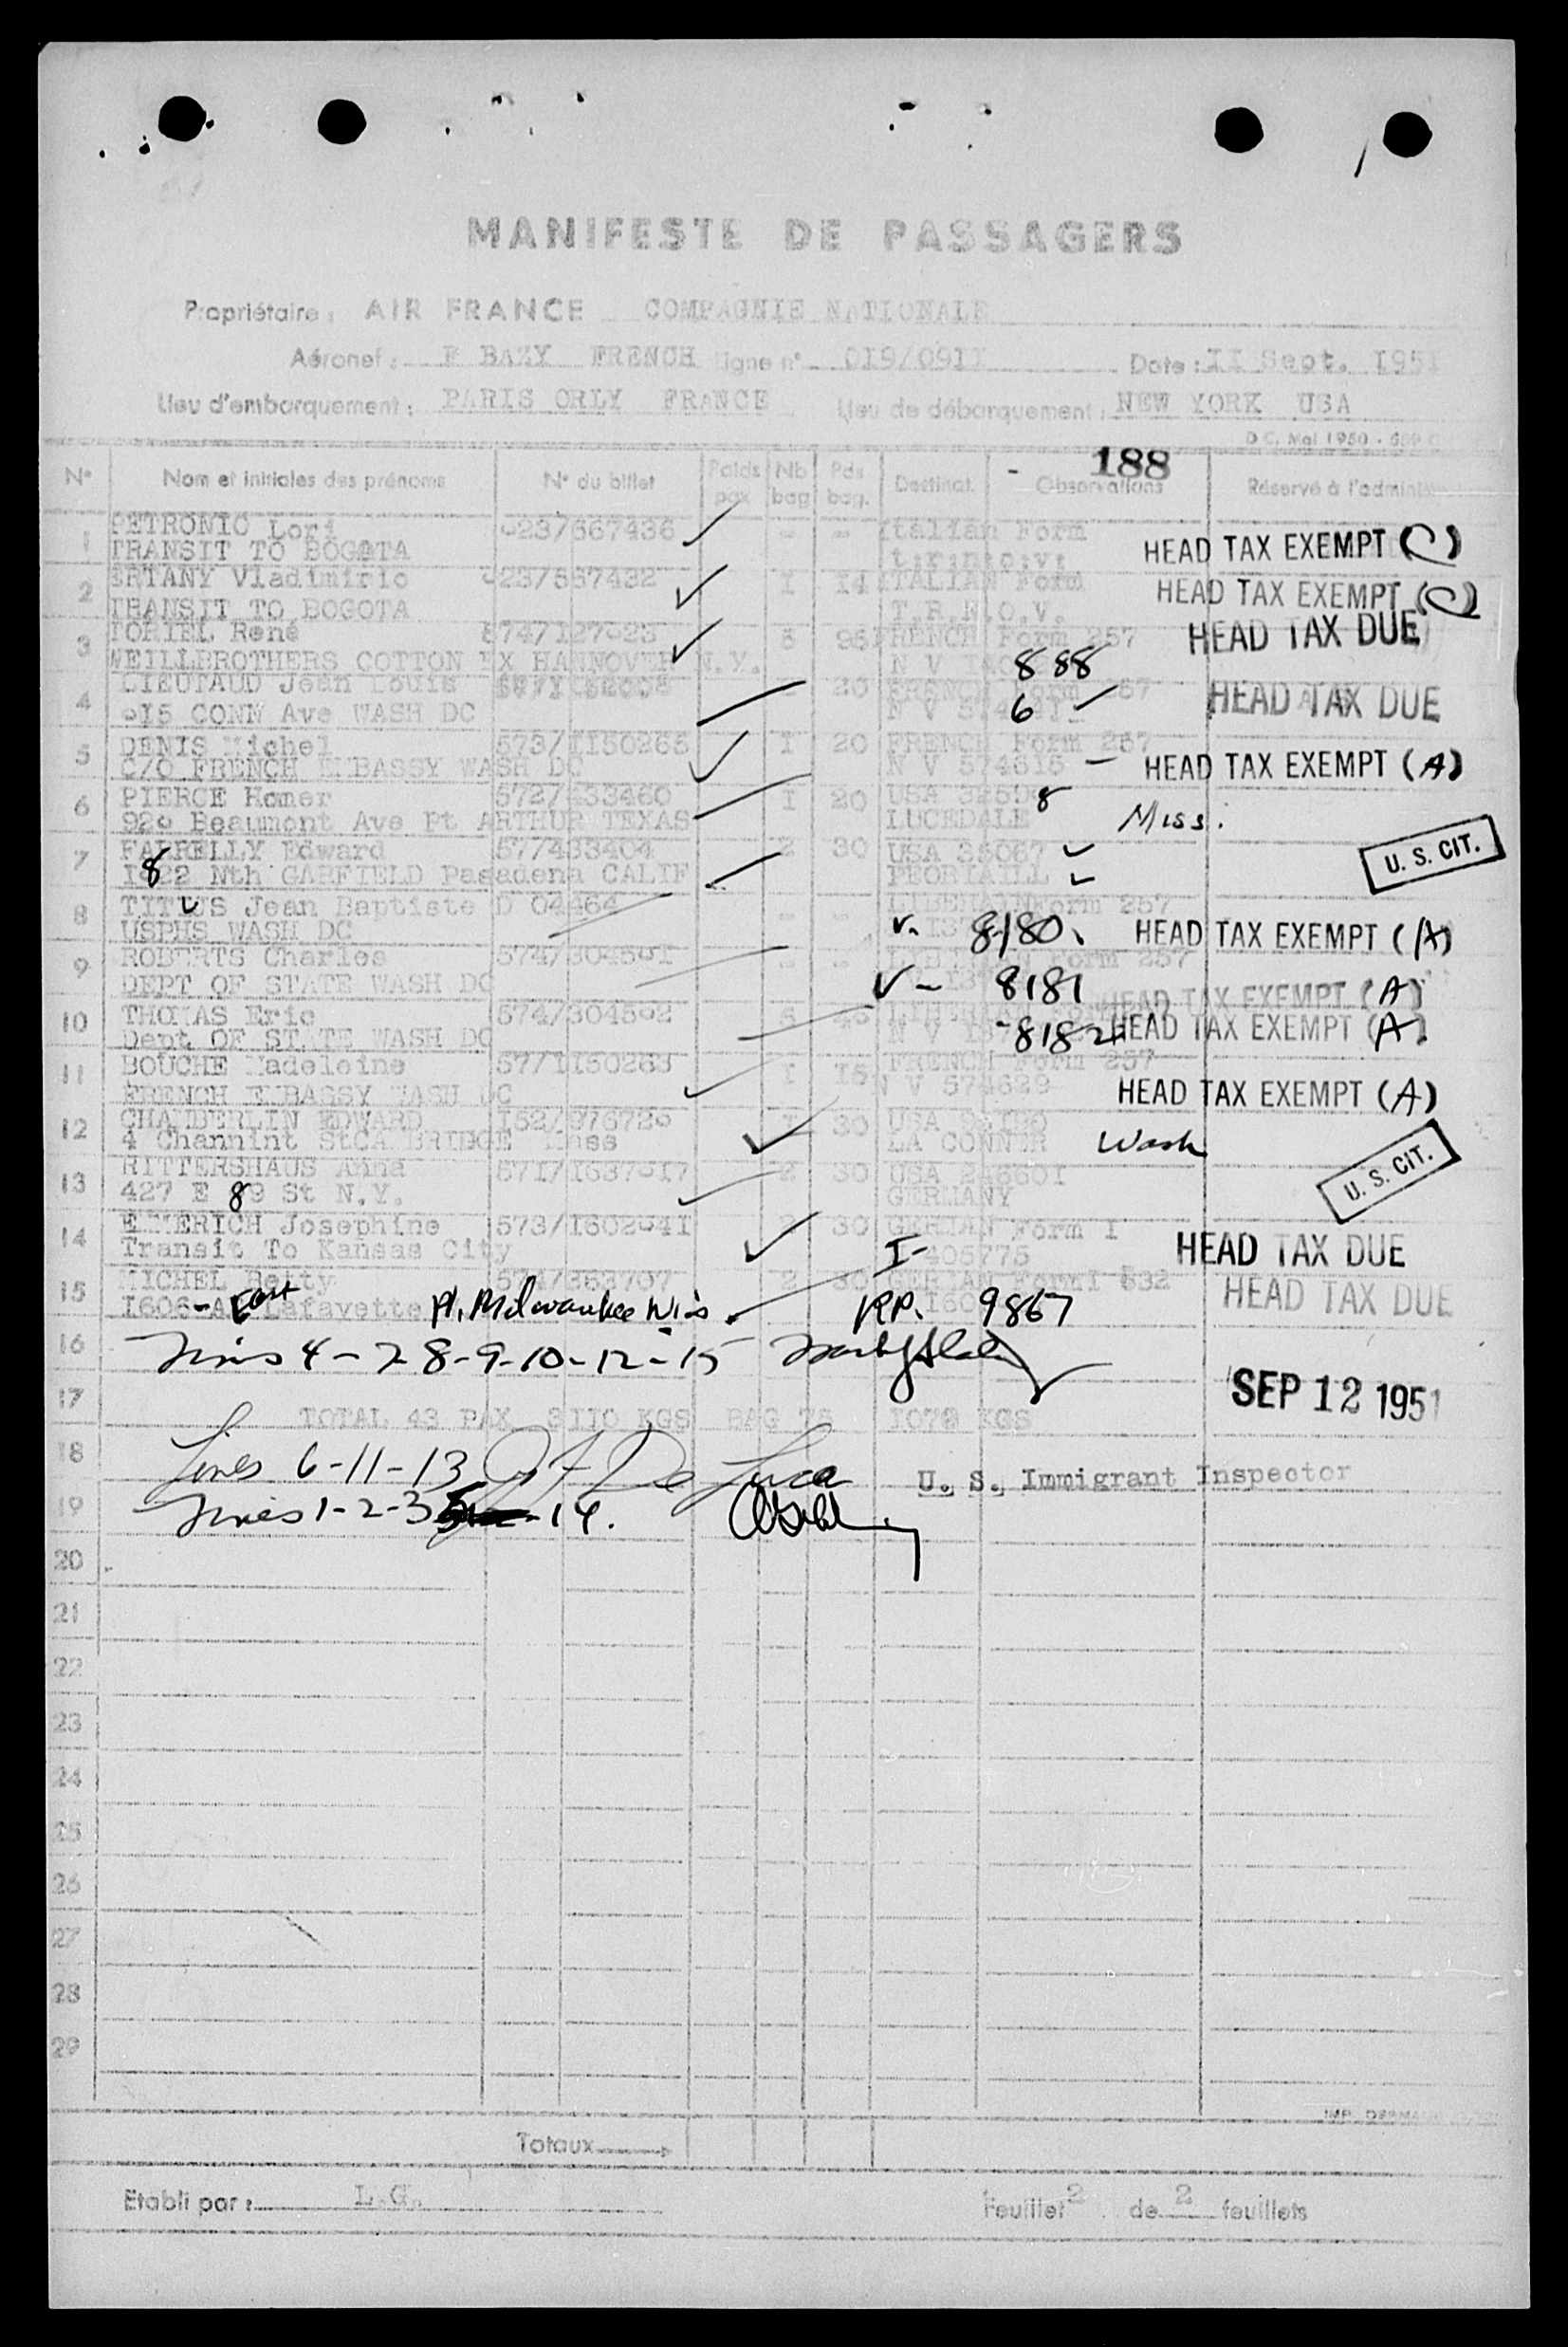 MANIFESTE DE PASSAGERS
Propriétaire : AIR FRANCE COMPAGNIE NATIONALE
Aéronef : F BAZY FRENCH Ligne n° 019/0911 Date : II Sept. 1951
Lieu d'embarquement : PARIS ORLY FRANCE Lieu de débarquement : NEW YORK USA
D C. Mai 1950
188
N° Nom et initiales des prénoms N° du billet Poids pax Nb bag Pds bag. Destinat. Observations Réservé à l'adminis
1 PETRONIO Lori 023/667436 - - Italian Form
TRANSIT TO BOGOTA t.r.n.o.v. HEAD TAX EXEMPT (C)
2 ERTANY Vladimirio 023/667432 I I4 ITALIAN Form HEAD TAX EXEMPT (C)
TRANSIT TO BOGOTA T.R.N.O.V.
3 TORIEL René 574/127023 5 95 FRENCH Form 257 HEAD TAX DUE
WEILLBROTHERS COTTON EX HANNOVER N.Y. N V 888
4 LIEUTAUD Jean Louis 20 FRENCH Form 257 HEAD TAX DUE
CONN Ave WASH DC N V 6
5 DENIS Michel 573/1150265 I 20 FRENCH Form 257
C/O FRENCH EMBASSY WASH DC N V 574615 - HEAD TAX EXEMPT (A)
6 PIERCE Homer 572/433460 I 20 USA 8
920 Beaumont Ave Pt ARTHUR TEXAS LUCEDALE Miss.
7 FARRELLY Edward 577433404 2 30 USA 35067 U. S. CIT.
Nth GARFIELD Pasadena CALIF PEORIAILL
8 TITUS Jean Baptiste D 04464 - LIBERIAN Form 257
USPHS WASH DC 8180 HEAD TAX EXEMPT (A)
9 ROBERTS Charles 574/304501 - - Form 257
DEPT OF STATE WASH DC 8181 HEAD TAX EXEMPT (A)
10 THOMAS Eric 574/304502 5 45
Dept OF STATE WASH DC N V -8182 HEAD TAX EXEMPT (A)
11 BOUCHE Madeleine 57/1150263 I I5 FRENCH Form 257
FRENCH EMBASSY WASH DC N V 574629 HEAD TAX EXEMPT (A)
12 CHAMBERLIN EDWARD 152/976720 30 USA
4 Channint StCAMBRIDGE Mass LA CONNER Wash
13 RITTERSHAUS Anna 571/1637017 2 30 USA 246601 U. S. CIT.
427 E 89 St N.Y. GERMANY
14 EMMERICH Josephine 573/1602041 30 GERMAN Form I
Transit To Kansas City I- 405775 HEAD TAX DUE
15 MICHEL Betty 2 30 GERMAN FormI 632 HEAD TAX DUE
1606- East Lafayette Pl. Milwaukee Wis. RP. 9867
16 Lines 4-7-8-9-10-12-15
SEP 12 1951
17 TOTAL 43 PAX 3110 KGS BAG 1078 KGS
18 Lines 6-11-13 De Luca U. S. Immigrant Inspector
19 Lines 1-2-3 -14.
20
21
22
23
24
25
26
27
28
29
Totaux
Etabli par : L.G. Feuillet 2 de 2 feuillets